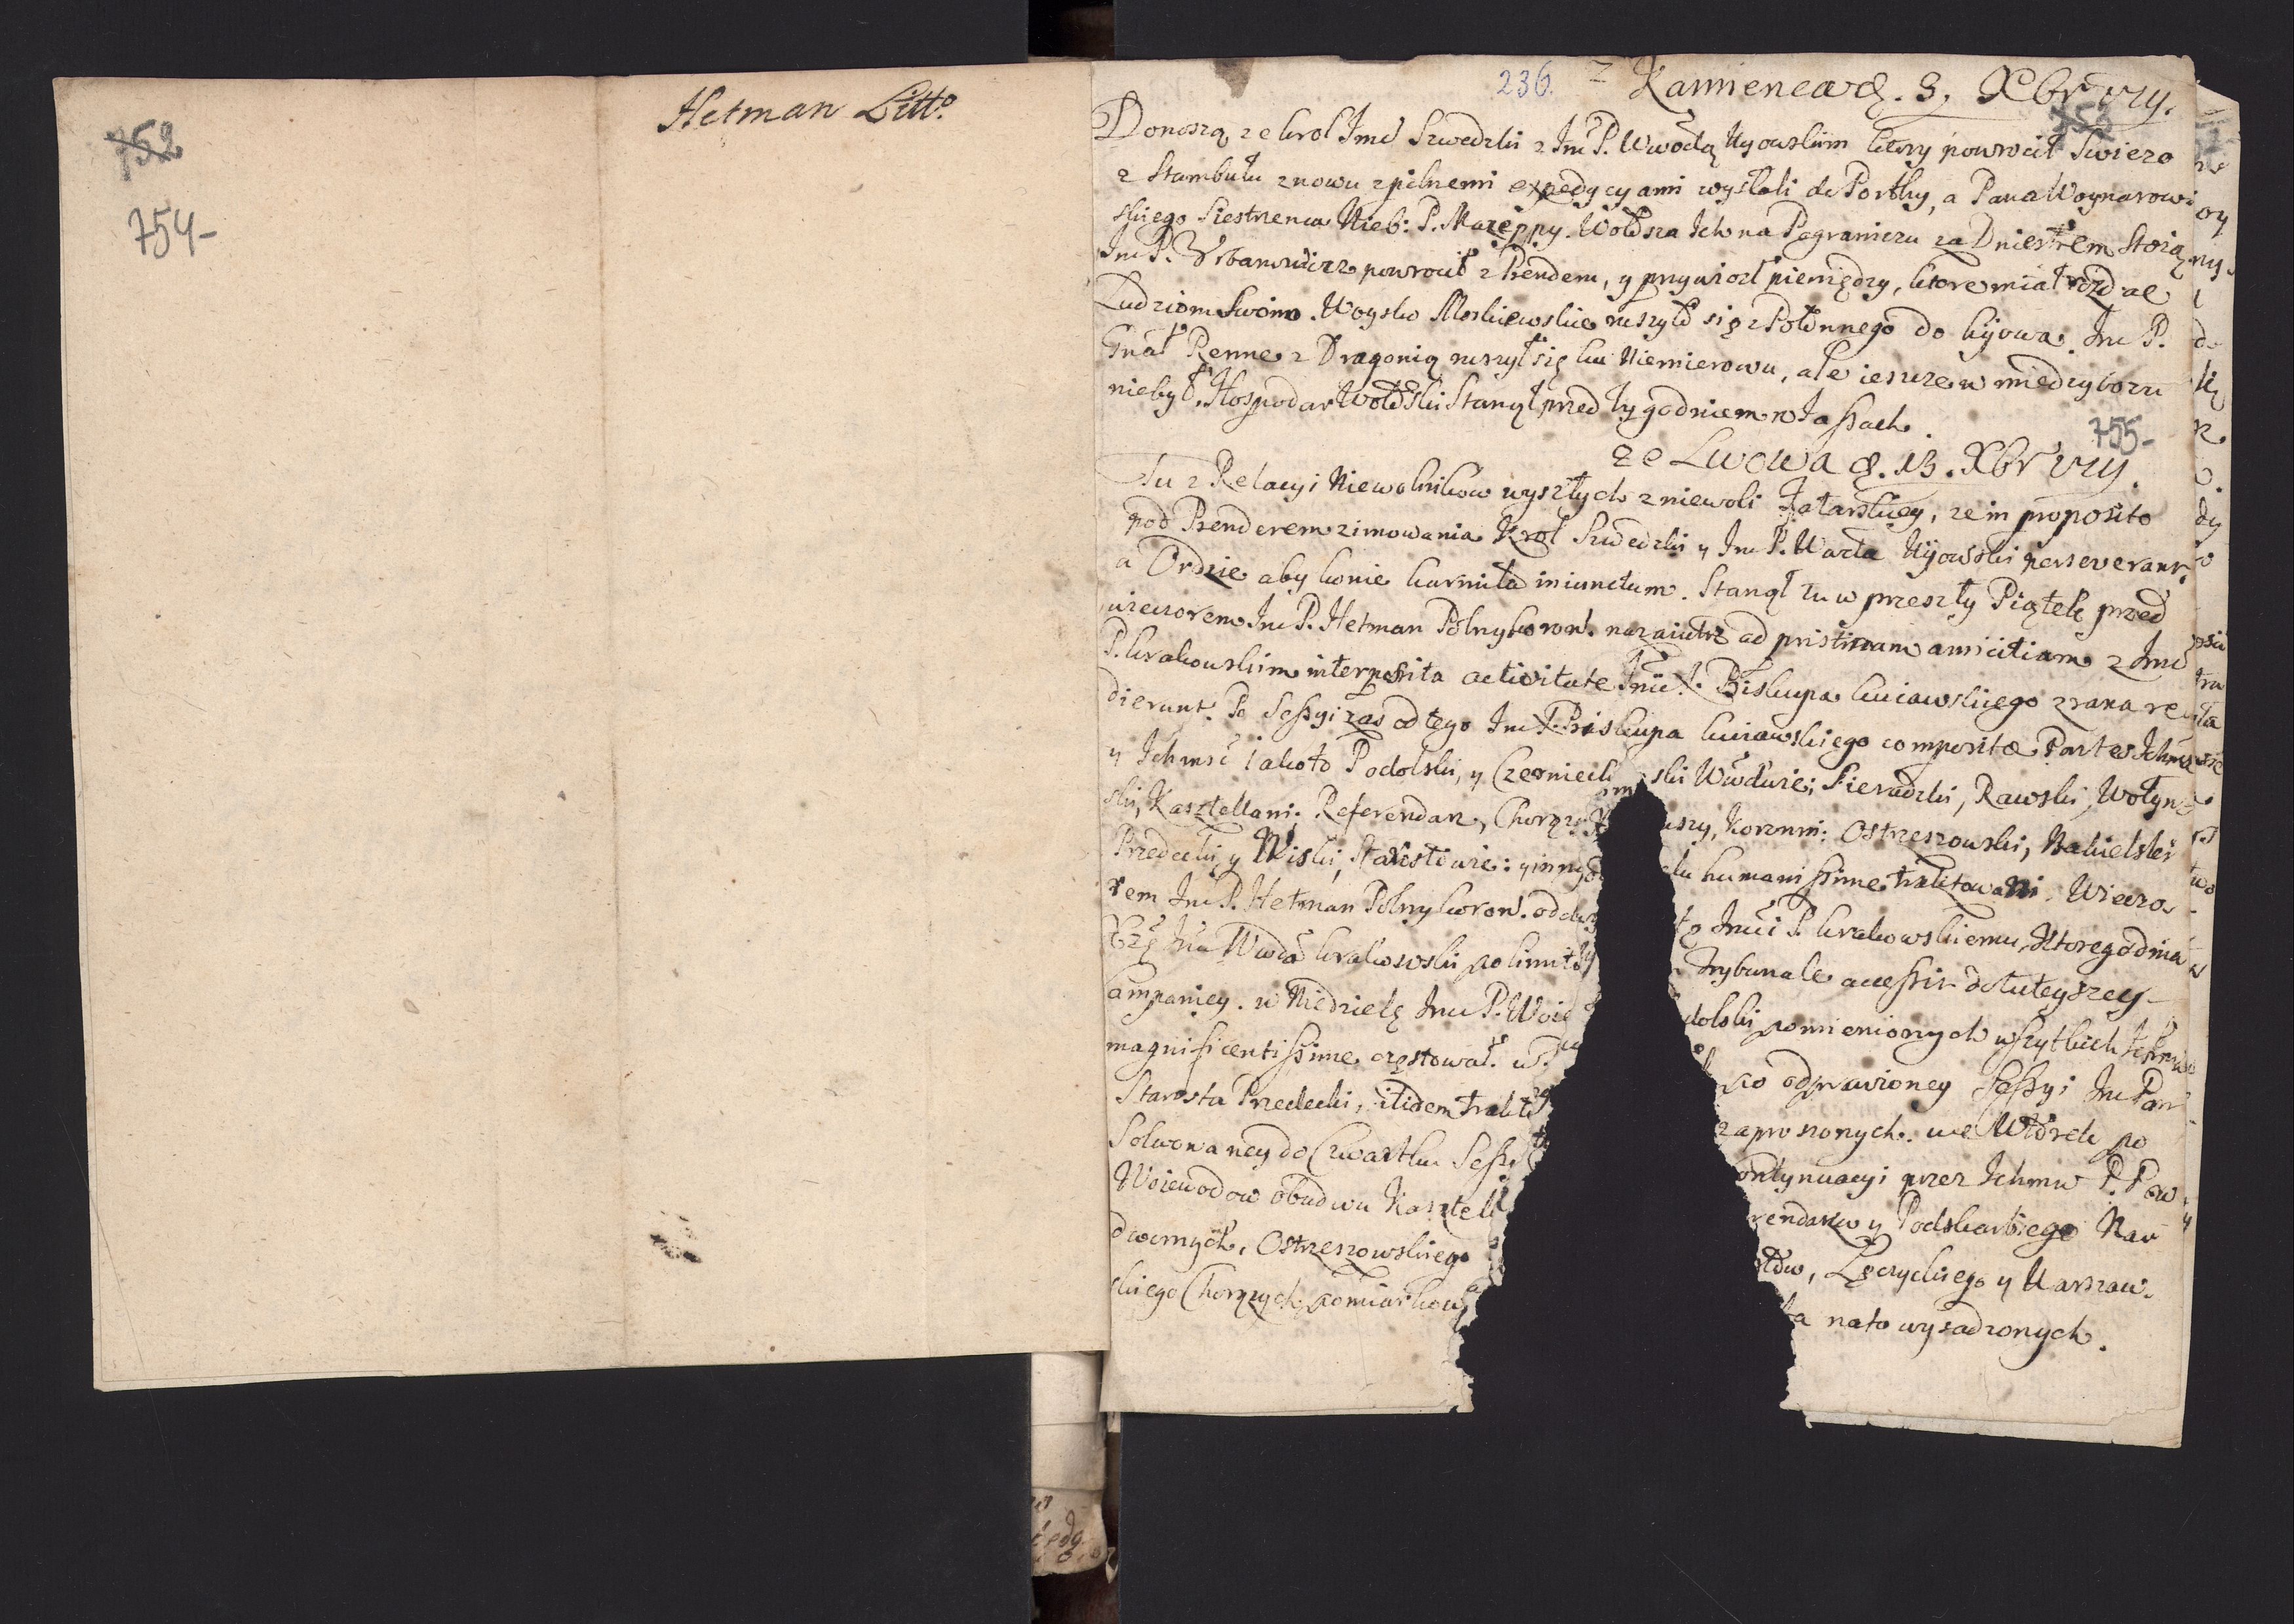 Hetman Litto
752
754-
236.
z Kamienca d. 3. Xbr 1711.
753
Donoszą ze krol Jmć Szwedzki z Jmć P. Wwodą Kyowskim ktory powrocił swiezo
z Stambułu znowu z pilnemi expedycyami wysłali do Porthy, a Pana Woynarow
skiego siestrzenca Nieb: P. Mazeppy. Wołosza Ich na Pograniczu za Dniestrem stoią
Jmć P. Urbanowicz powrocił z Benderu, y przywiozł pieniędzy, ktore miał rozdac
Ludziom swoim. Woysko Moskiewskie ruszyło się z Połonnego do kijowa. Jmć P.
Gnał Renne z Dragonią ruszył się ku Niemierowu, ale ieszcze w międzybozu
niebył. Hospodar Wołoski stanął przed tygodniem w Jassach.
755-
ze Lwowa d. 13. Xbr 1711.
Tu z Relacyi Niewolnikow wyszłych z niewoli Tatarskiey, ze in proposito
pod Benderem zimowania Krol Szwedzki y Jmć P. Wda Kijowski perseverant.
a Ordzie aby konie karmiła iniunctum. Stanął tu w przeszły Piątek przed
wieczorem Jmć P. Hetman Polny koron. nazaiutrz ad pristinam amicitiam z Jmć
P. krakowskim interposita activitate Jmć X. Biskupa kuiawskiego z rana re
dierunt. Po Sessyi zas od tego Jmć X. Biskupa kuiawskiego compositæ Partes Ichmć
y Ichmść iakoto Podolski, y Czerniech ski Wwdowie; Sieradzki, Rawski, Wołyn
ski, Kasztellani; Referendarz, Chorąży uszy, Koronni: Ostrzeszowski, Nakielski
Przedecki, y Niski, Starostowie: y innych lu humanissime traktowani. Wieczo
rem Jmć P. Hetman Polny koron. oddał to Jmći P. krakowskiemu, ktorego dnia
Xżę Jmć Wwda krakowski po limit Trybunale accessit do tuteyszey
kampaniey. w Niedzielę Jmć P. Woie dolski pomienionych wszytkich Ichmć
magnificentissime częstował. w po odprawioney Sessyi Jmć Pan
Starosta Przedecki, itidem trakto zaproszonych. we Wtorek po
Solwowaney do Czwartku Sessy ontynuacyi przez Ichmćw P. Pow
Woiewodow obudwu Kasztell rendarza y Podskarbiego Nad
dwornych, Ostrzeszowskiego tow, Łęczyckiego y Warszaw.
skiego Chorązych, pomiarkow ta nato wysadzonych.